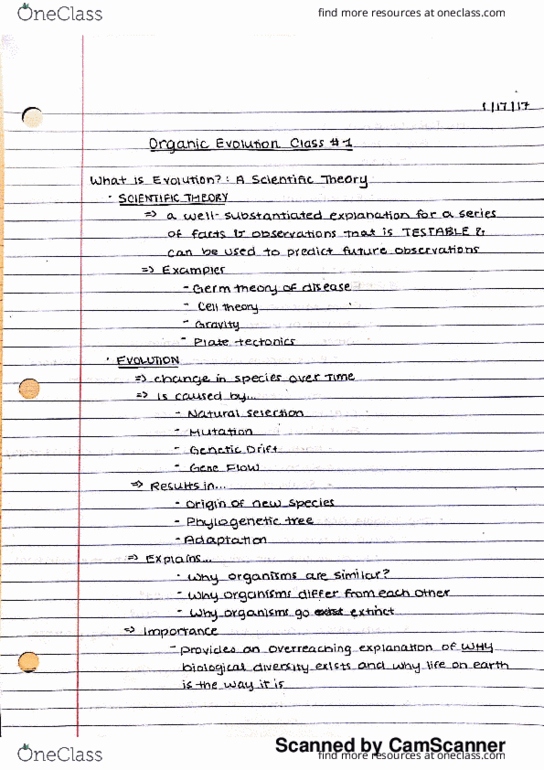 OneClass
find more resources at oneclass.com
1/17/17
Organic Evolution Class #1
What is Evolution?: A Scientific Theory
· SCIENTIFIC THEORY
=> a well-substantiated explanation for a series
of facts & observations that is TESTABLE &
can be used to predict future observations
=> Examples
- Germ theory of disease
- Cell theory
- Gravity
- Plate tectonics
· EVOLUTION
=> change in species over time
=> is caused by...
- Natural selection
- Mutation
- Genetic Drift
- Gene Flow
=> Results in...
- origin of new species
- Phylogenetic tree
- Adaptation
=> Explains...
- why organisms are similar?
- why organisms differ from each other
- why organisms go extinct
=> Importance
- provides an overreaching explanation of WHY
biological diversity exists and why life on earth
is the way it is
Scanned by CamScanner
OneClass
find more resources at oneclass.com